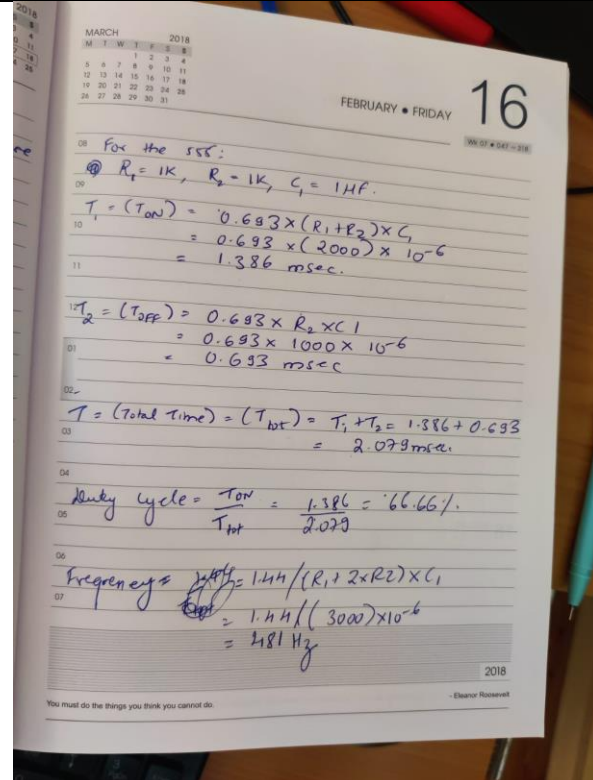 2018
MARCH 2018
M T W T F S S
1 2 3 4
5 6 7 8 9 10 11
12 13 14 15 16 17 18
19 20 21 22 23 24 25
26 27 28 29 30 31
FEBRUARY • FRIDAY 16
Wk 07 • 047 - 318
08 For the 555:
R₁ = 1K, R₂ = 1K, C₁ = 1µF.
09
T₁ = (TON) = 0.693 × (R₁ + R₂) × C₁
10 = 0.693 × (2000) × 10⁻⁶
= 1.386 msec.
11
12 T₂ = (TOFF) = 0.693 × R₂ × C1
= 0.693 × 1000 × 10⁻⁶
01 = 0.693 msec
02
T = (Total Time) = (Ttot) = T₁ + T₂ = 1.386 + 0.693
03 = 2.079 msec.
04
Duty cycle = TON / Ttot = 1.386 / 2.079 = 66.66%.
05
06
Frequency = = 1.44/(R₁ + 2×R2) × C₁
07
= 1.44/((3000) × 10⁻⁶
= 481 Hz
2018
You must do the things you think you cannot do. - Eleanor Roosevelt